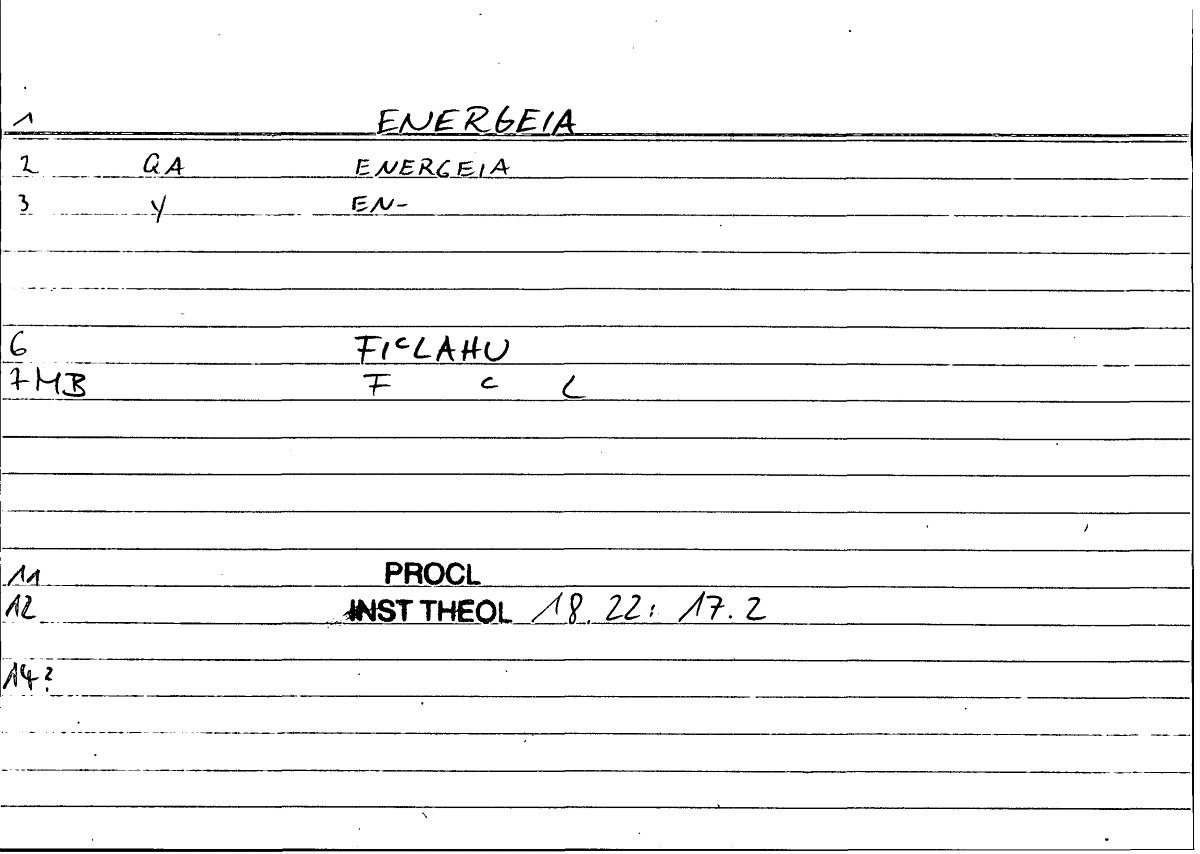 1 ENERGEIA
2 QA ENERGEIA
3 Y EN-
6 FIᶜLAHU
7 MB F c L
11 PROCL
12 INST THEOL 18.22: 17.2
14?